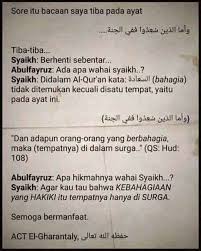 Sore itu bacaan saya tiba pada ayat
وأما الذين سعدوا ففي الجنة....
Tiba-tiba...
Syaikh: Berhenti sebentar...
Abulfayruz: Ada apa wahai syaikh..?
Syaikh: Didalam Al-Qur'an kata: السعادة (bahagia)
tidak ditemukan kecuali disatu tempat, yaitu
pada ayat ini.
(وأما الذين سعدوا ففي الجنة...)
"Dan adapun orang-orang yang berbahagia,
maka (tempatnya) di dalam surga.." (QS: Hud:
108)
Abulfayruz: Apa hikmahnya wahai Syaikh...?
Syaikh: Agar kau tau bahwa KEBAHAGIAAN
yang HAKIKI itu tempatnya hanya di SURGA.
Semoga bermanfaat.
ACT El-Gharantaly, حفظه الله تعالى